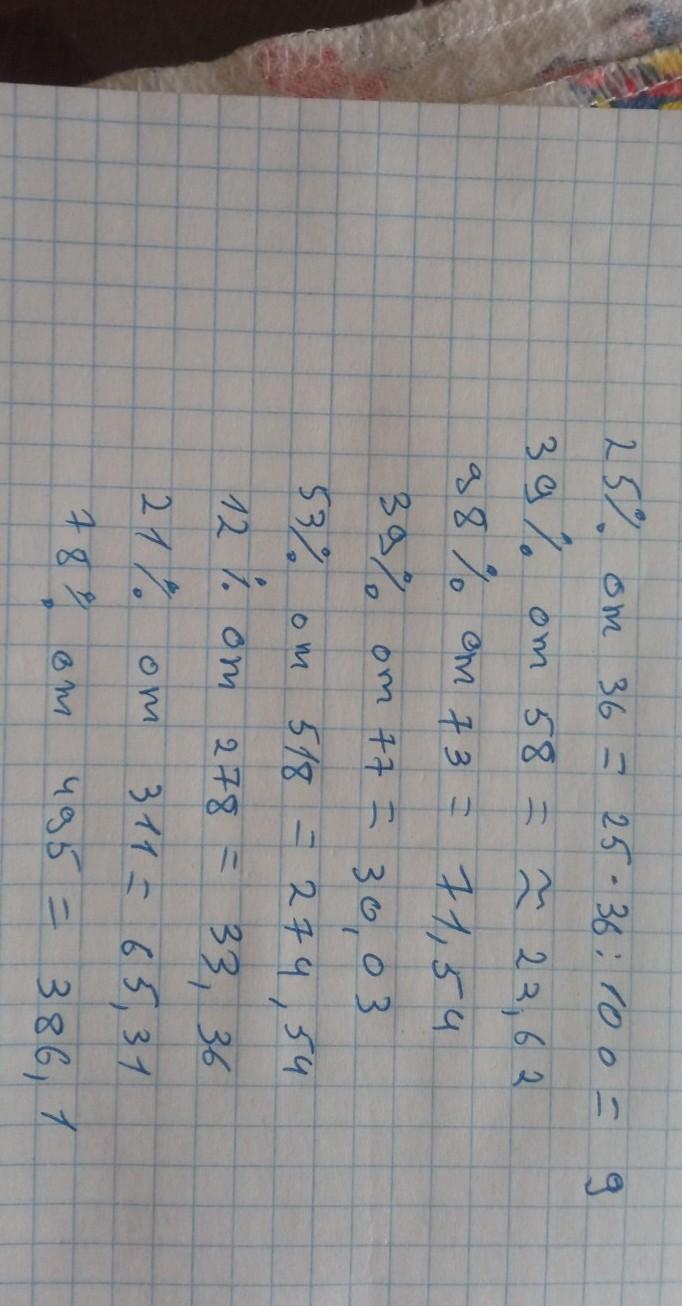 25% от 36 = 25 · 36 : 100 = 9
39% от 58 = ≈ 23,62
98% от 73 = 71,54
39% от 77 = 30,03
53% от 518 = 274,54
12% от 278 = 33,36
21% от 311 = 65,31
78% от 495 = 386,1